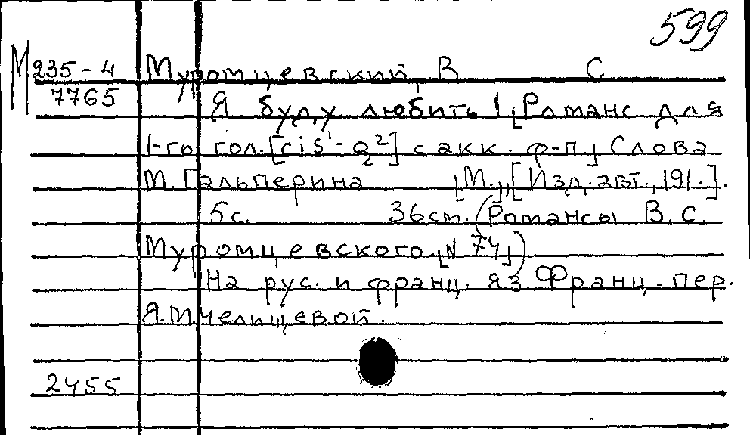 599
М 235-4 Муромцевский, В С
7765 Я буду любить! [Романс для
1-го гол. [cis¹-a²] с акк. ф-п] Слова
М. Гальперина [М.], [Изд. авт., 191.].
5с. 36см. (Романсы В. С.
Муромцевского. [N 74])
На рус. и франц. яз Франц. пер.
Я. Пчелищевой.
2455